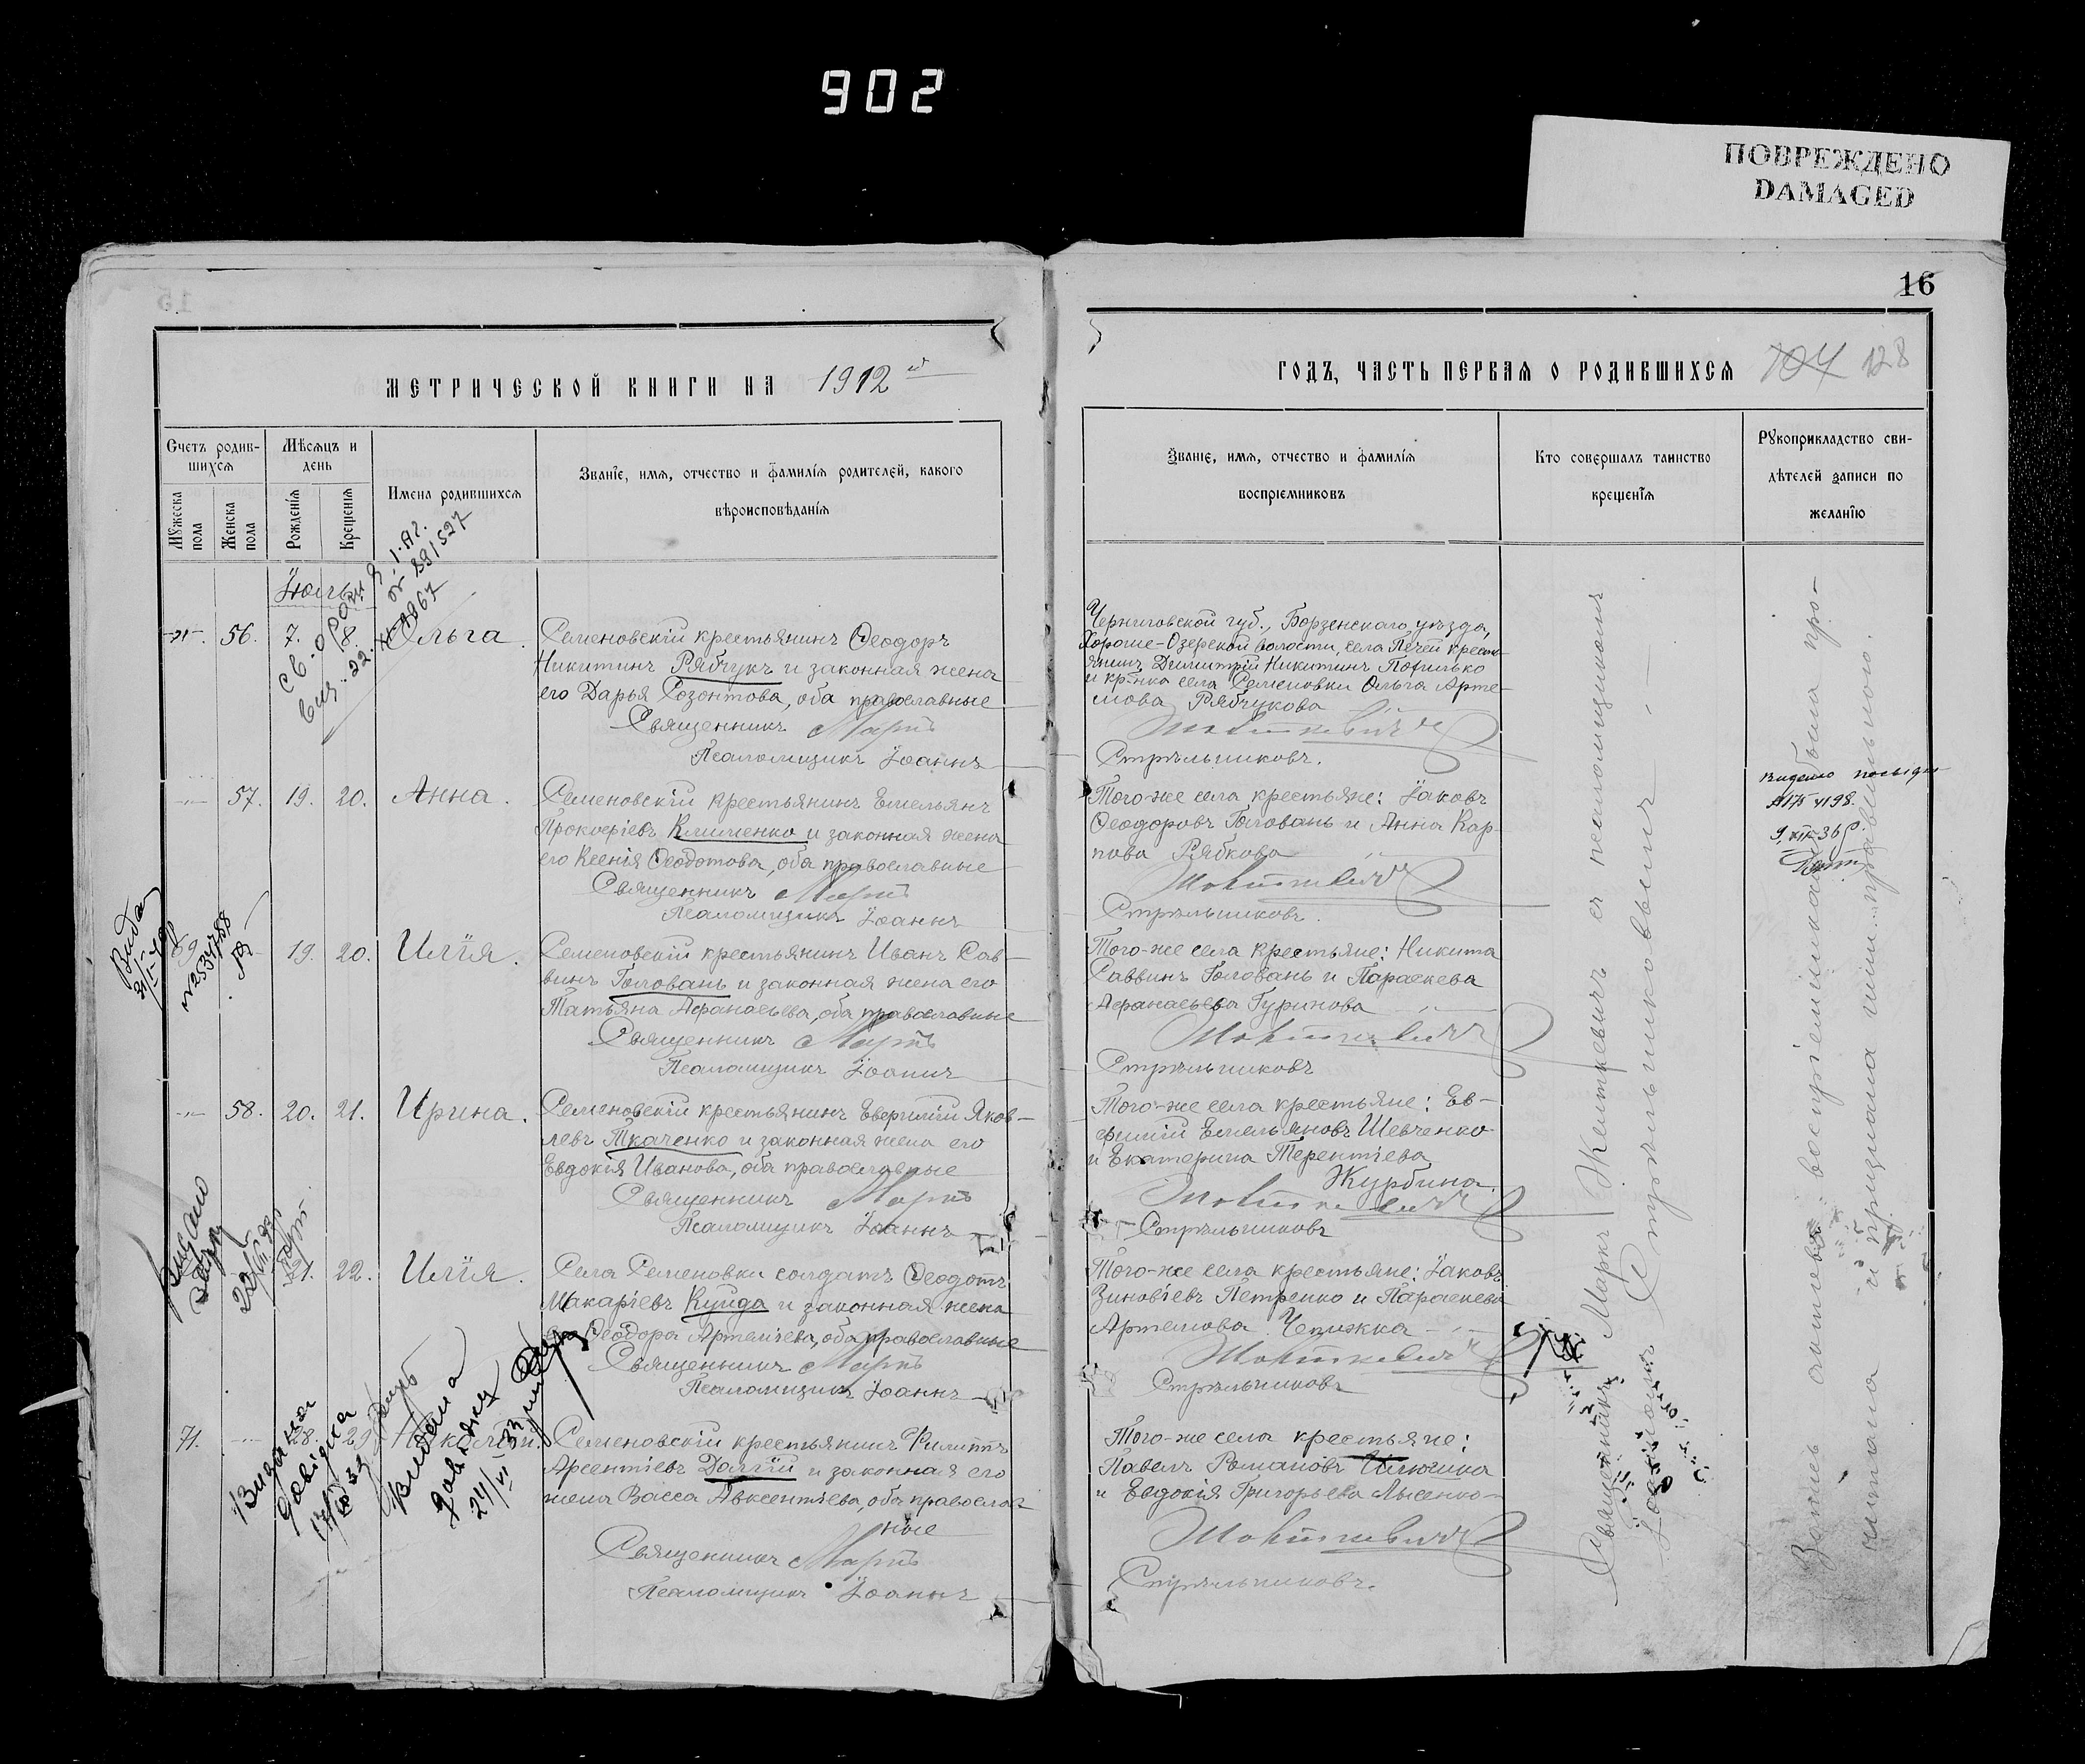 902
ПОВРЕЖДЕНО
DAMAGED
16
МЕТРИЧЕСКОЙ КНИГИ НА 1912
ГОДЪ, ЧАСТЬ ПЕРВАЯ О РОДИВШИХСЯ 104 128
Счетъ родив-
шихся
Мужеска пола
Женска пола
Мѣсяцъ и
день
Рожденія
Крещенія
Имена родившихся
Званіе, имя, отчество и фамилія родителей, какого
вѣроисповѣданія
Званіе, имя, отчество и фамилія
воспріемниковъ
Кто совершалъ таинство
крещенія
Рукоприкладство сви-
дѣтелей записи по
желанію
Іюль
56. 7. 8. Ольга.
Семеновскій крестьянинъ Ѳеодоръ
Никитинъ Рябчукъ и законная жена
его Дарья Созонтова, оба православные
Священникъ Маркъ
Псаломщикъ Іоаннъ
Черниговской губ., Борзенскаго уѣзда,
Хороше-Озерской волости, села Печей кресть-
янинъ Димитрій Никитинъ
и кр-нка села Семеновки Ольга Арте-
мова Рябчукова
Стрѣльниковъ.
57. 19. 20. Анна.
Семеновскій крестьянинъ Емельянъ
Прокофіевъ Клименко и законная жена
его Ксенія Ѳеодотова, оба православные
Священникъ Маркъ
Псаломщикъ Іоаннъ
Того-же села крестьяне: Іаковъ
Ѳеодоровъ Головань и Анна Кар-
пова Рябкова
Стрѣльниковъ.
69 19. 20. Илія.
Семеновскій крестьянинъ Иванъ Сав-
винъ Головань и законная жена его
Татьяна Афанасьева, оба православные
Священникъ Маркъ
Псаломщикъ Іоаннъ
Того-же села крестьяне: Никита
Саввинъ Головань и Параскева
Афанасьева Гуринова
Стрѣльниковъ
58. 20. 21. Ирина.
Семеновскій крестьянинъ Евфимій Яков-
левъ Ткаченко и законная жена его
Евдокія Иванова, оба православные
Священникъ Маркъ
Псаломщикъ Іоаннъ
Того-же села крестьяне: Ев-
фимій Емельяновъ Шевченко
и Екатерина Терентіева
Журбина.
Стрѣльниковъ
21. 22. Илія.
Села Семеновки солдатъ Ѳеодотъ
Макаріевъ Куйда и законная жена
Ѳеодора Артеміева, оба православные
Священникъ Маркъ
Псаломщикъ Іоаннъ
Того-же села крестьяне: Іаковъ
Зиновіевъ Петренко и Параскева
Артемова Чепижка
Стрѣльниковъ
71. 28. 29
Семеновскій крестьянинъ Филиппъ
Арсентіевъ Долгій и законная его
жена Васса Авксентіева, оба православ-
ные
Священникъ Маркъ
Псаломщикъ Іоаннъ
Того-же села крестьяне:
Павелъ Романовъ
и Евдокія Григорьева Лысенко
Стрѣльниковъ.
Священникъ Маркъ съ псаломщикомъ
Іоанномъ Стрѣльниковымъ
Запись воспріемниками была про-
читана и признана правильною.
Видана
довідка
Видана